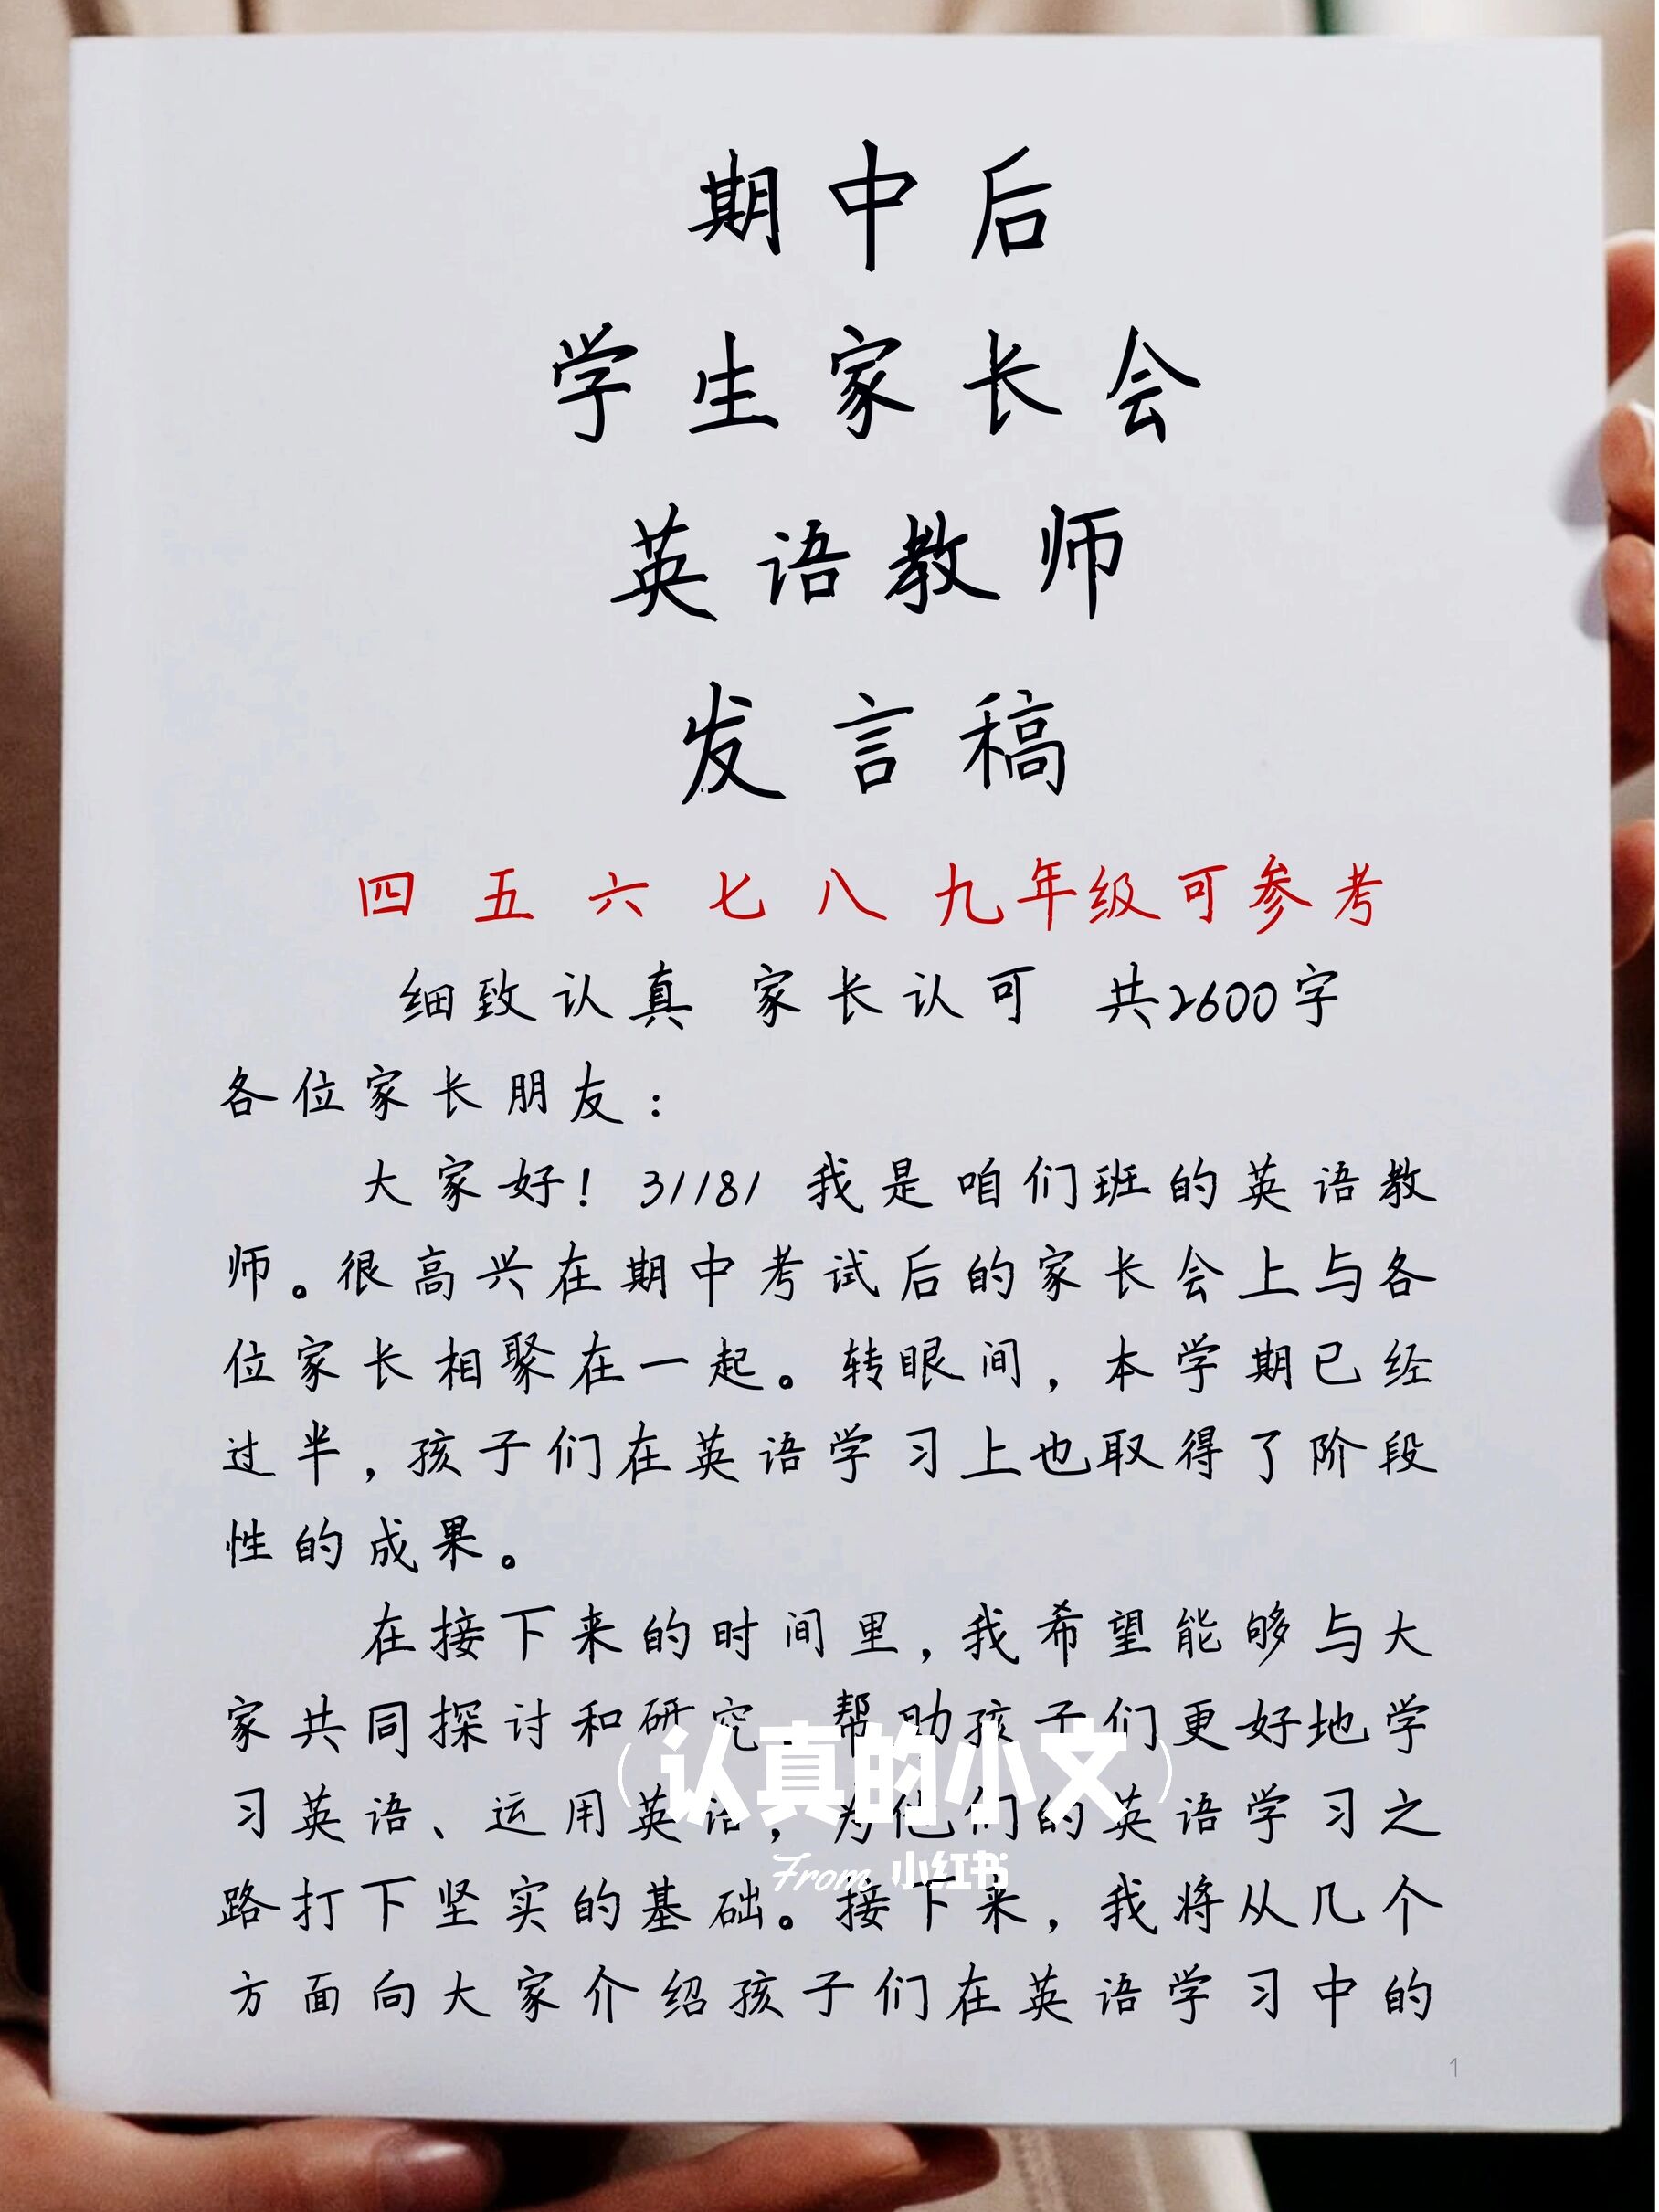 期中后
学生家长会
英语教师
发言稿
四 五 六 七 八 九年级可参考
细致认真 家长认可 共2600字
各位家长朋友：
大家好！31181 我是咱们班的英语教
师。很高兴在期中考试后的家长会上与各
位家长相聚在一起。转眼间，本学期已经
过半，孩子们在英语学习上也取得了阶段
性的成果。
在接下来的时间里，我希望能够与大
家共同探讨和研究，帮助孩子们更好地学
习英语、运用英语，为他们的英语学习之
路打下坚实的基础。接下来，我将从几个
方面向大家介绍孩子们在英语学习中的
（认真的小文）
From 小红书
1